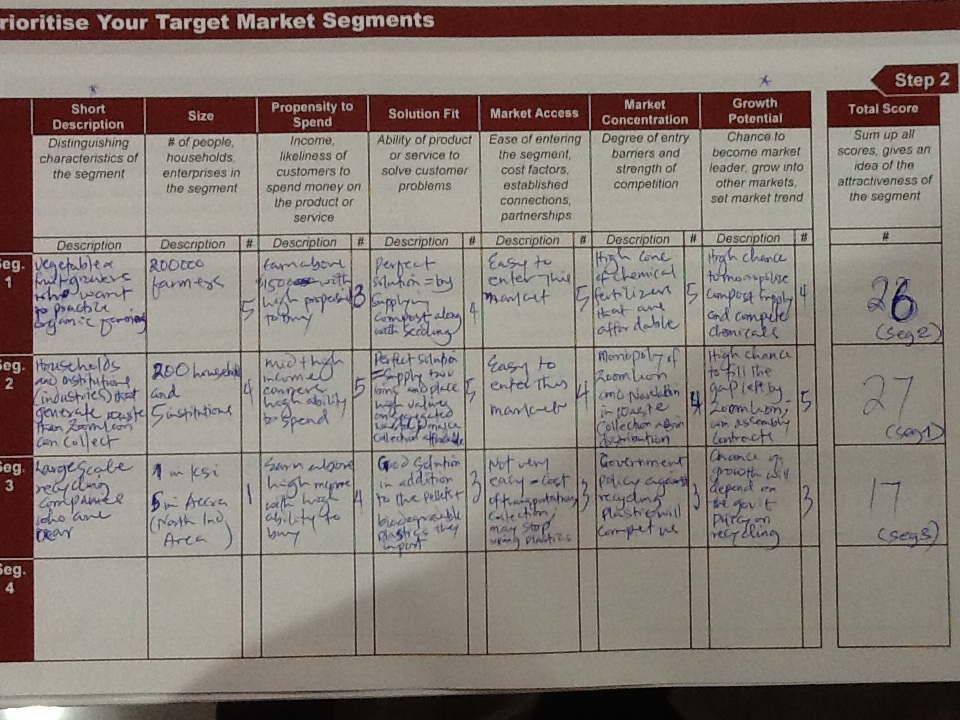 rioritise Your Target Market Segments
Step 2
*
*
Short
Description
Size
Propensity to
Spend
Solution Fit
Market Access
Market
Concentration
Growth
Potential
Total Score
Distinguishing
characteristics of
the segment
# of people,
households,
enterprises in
the segment
Income,
likeliness of
customers to
spend money on
the product or
service
Ability of product
or service to
solve customer
problems
Ease of entering
the segment,
cost factors,
established
connections,
partnerships
Degree of entry
barriers and
strength of
competition
Chance to
become market
leader, grow into
other markets,
set market trend
Sum up all
scores, gives an
idea of the
attractiveness of
the segment
Description
Description
#
Description
#
Description
#
Description
#
Description
#
Description
#
#
Seg.
1
Vegetable &
fruit growers
who want
to practice
organic farming
200000
farmers
5
Earn above
with
high propensity
to buy
3
Perfect
solution = by
supplying
compost along
with seedling
4
Easy to
enter this
market
5
High conc
of chemical
fertilizers
that are
affordable
5
High chance
to monopolize
compost supply
and compete
chemicals
4
26
(seg2)
Seg.
2
Households
and institutions
(industries) that
generate waste
than Zoomlion
can collect
200 household
and
5 institutions
4
mid + high
income
earners
high ability
to spend
5
Perfect solution
= Supply two
bins and place
high values
on
collection affordable
5
Easy to
enter this
market
4
Monopoly of
Zoomlion
and
in waste
collection
distribution
4
High chance
to fill the
gap left by
Zoomlion,
assembly
contracts
5
27
(seg1)
Seg.
3
Large scale
recycling
companies
who are
near
1 in Ksi
5 in Accra
(North Ind
Area)
1
Earn above
high income
with high
ability to
buy
4
Good solution
in addition
to the pellets
biodegradable
plastics they
import
3
Not very
easy = cost
of transportation,
collection,
may stop
using plastics
3
Government
policy against
recycling
plastic will
compet us
3
Chance of
growth will
depend on
the gov't
policy on
recycling
3
17
(seg3)
Seg.
4